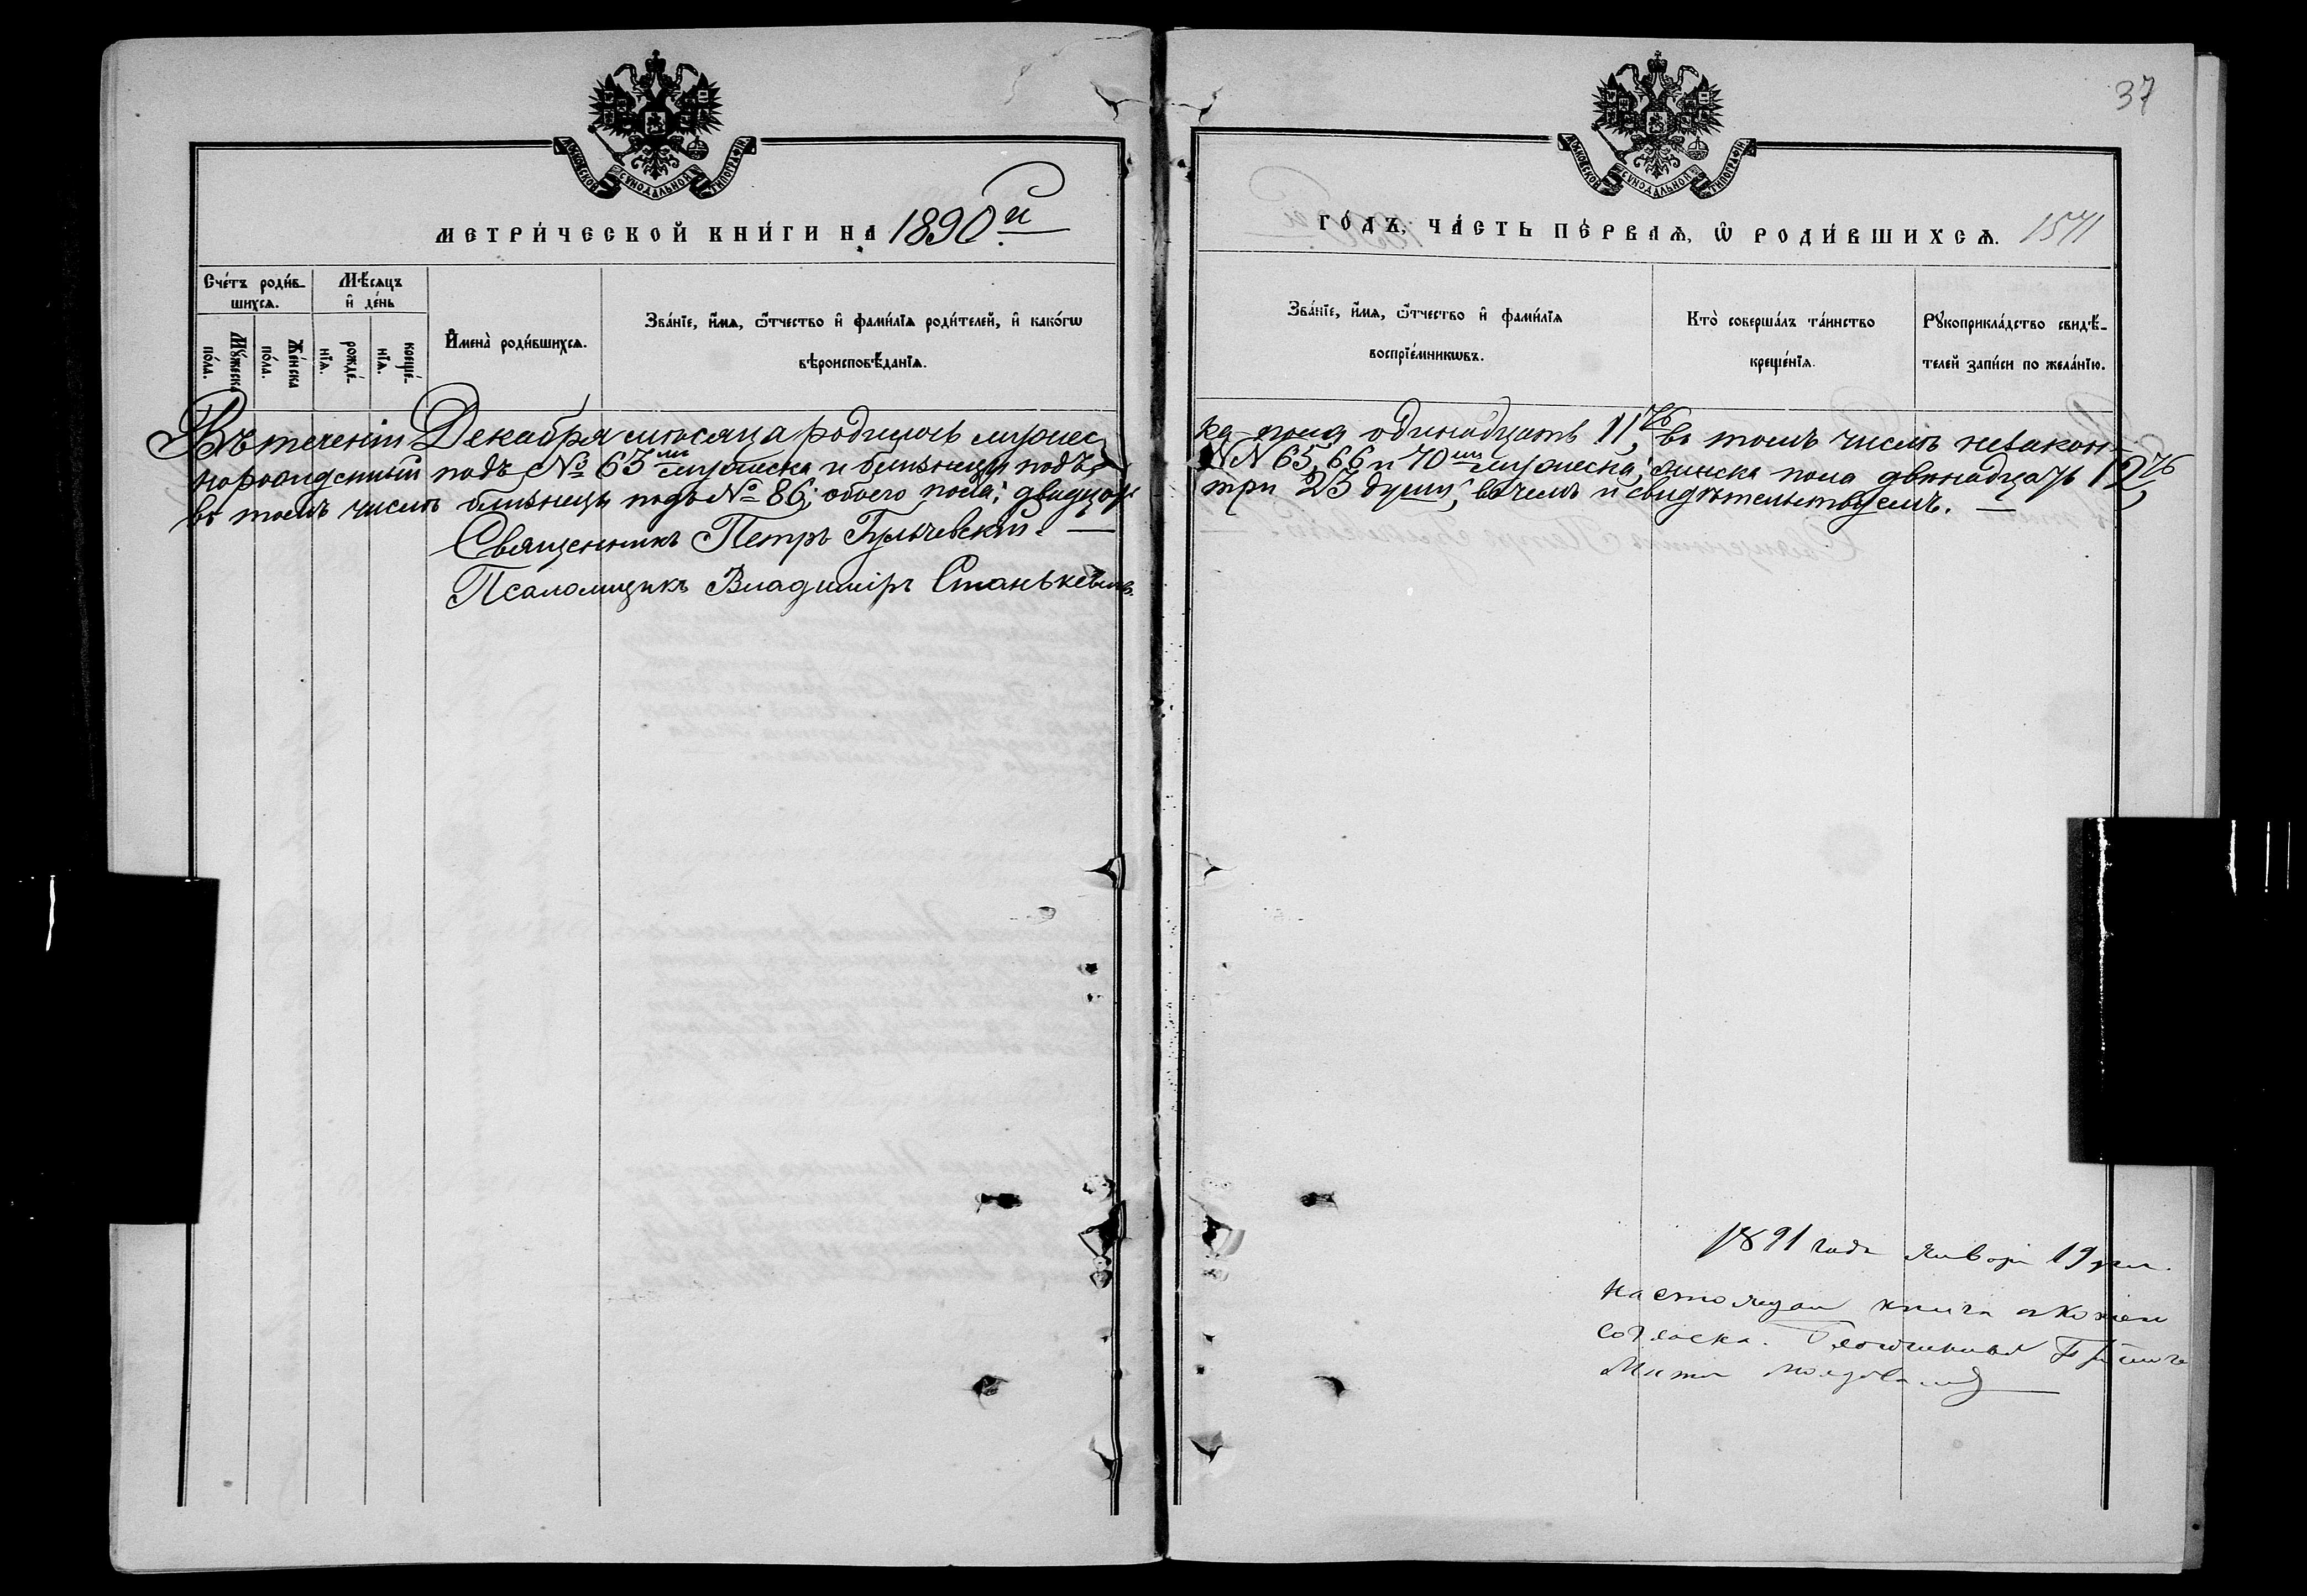 37
МОСКОВСКОЙ СѴНОДАЛЬНОЙ ТИПОГРАФІИ.
МОСКОВСКОЙ СѴНОДАЛЬНОЙ ТИПОГРАФІИ.
МЕТРИ́ЧЕСКОЙ КНИ́ГИ НА 1890й
ГО́ДЪ, ЧА́СТЬ ПЕ́РВАѦ, Ѡ РОДИ́ВШИХСѦ. 1541
Сче́тъ роди́в-
шихсѧ.
Мѣ́сяцъ
и҆ де́нь
Мꙋ́жеска
по́ла.
Же́нска
по́ла.
рожде́-
нїѧ.
креще́-
нїѧ.
И҆мена̀ роди́вшихсѧ.
Зва́нїе, и҆́мѧ, ѻ҆́тчество и҆ фами́лїѧ роди́телей, и҆ како́гѡ
вѣроисповѣ́данїѧ.
Зва́нїе, и҆́мѧ, ѻ҆́тчество и҆ фами́лїѧ
воспрїе́мникѡвъ.
Кто̀ соверша́лъ та́инство
креще́нїѧ.
Рꙋкоприкла́дство свидѣ́-
телей за́писи по жела́нїю.
Въ теченіи Декабря мѣсяца родилось мужес
ка пола одинадцать 11ть, въ томъ числѣ незакон-
норожденный подъ № 63мъ мужеска и близнецы подъ
NN 65, 66 и 70мъ мужеска; женска пола двенадцать 12ть,
въ томъ числѣ близнецъ подъ № 86; обоего пола: двадцать
три 23 души; въ чемъ и свидѣтельствуемъ. —
Священникъ Петръ Гульчевскій. —
Псаломщикъ Владиміръ Станькевичъ.
1891 года января 19 дня.
Настоящая книга съ копіею
согласна. Благочинный